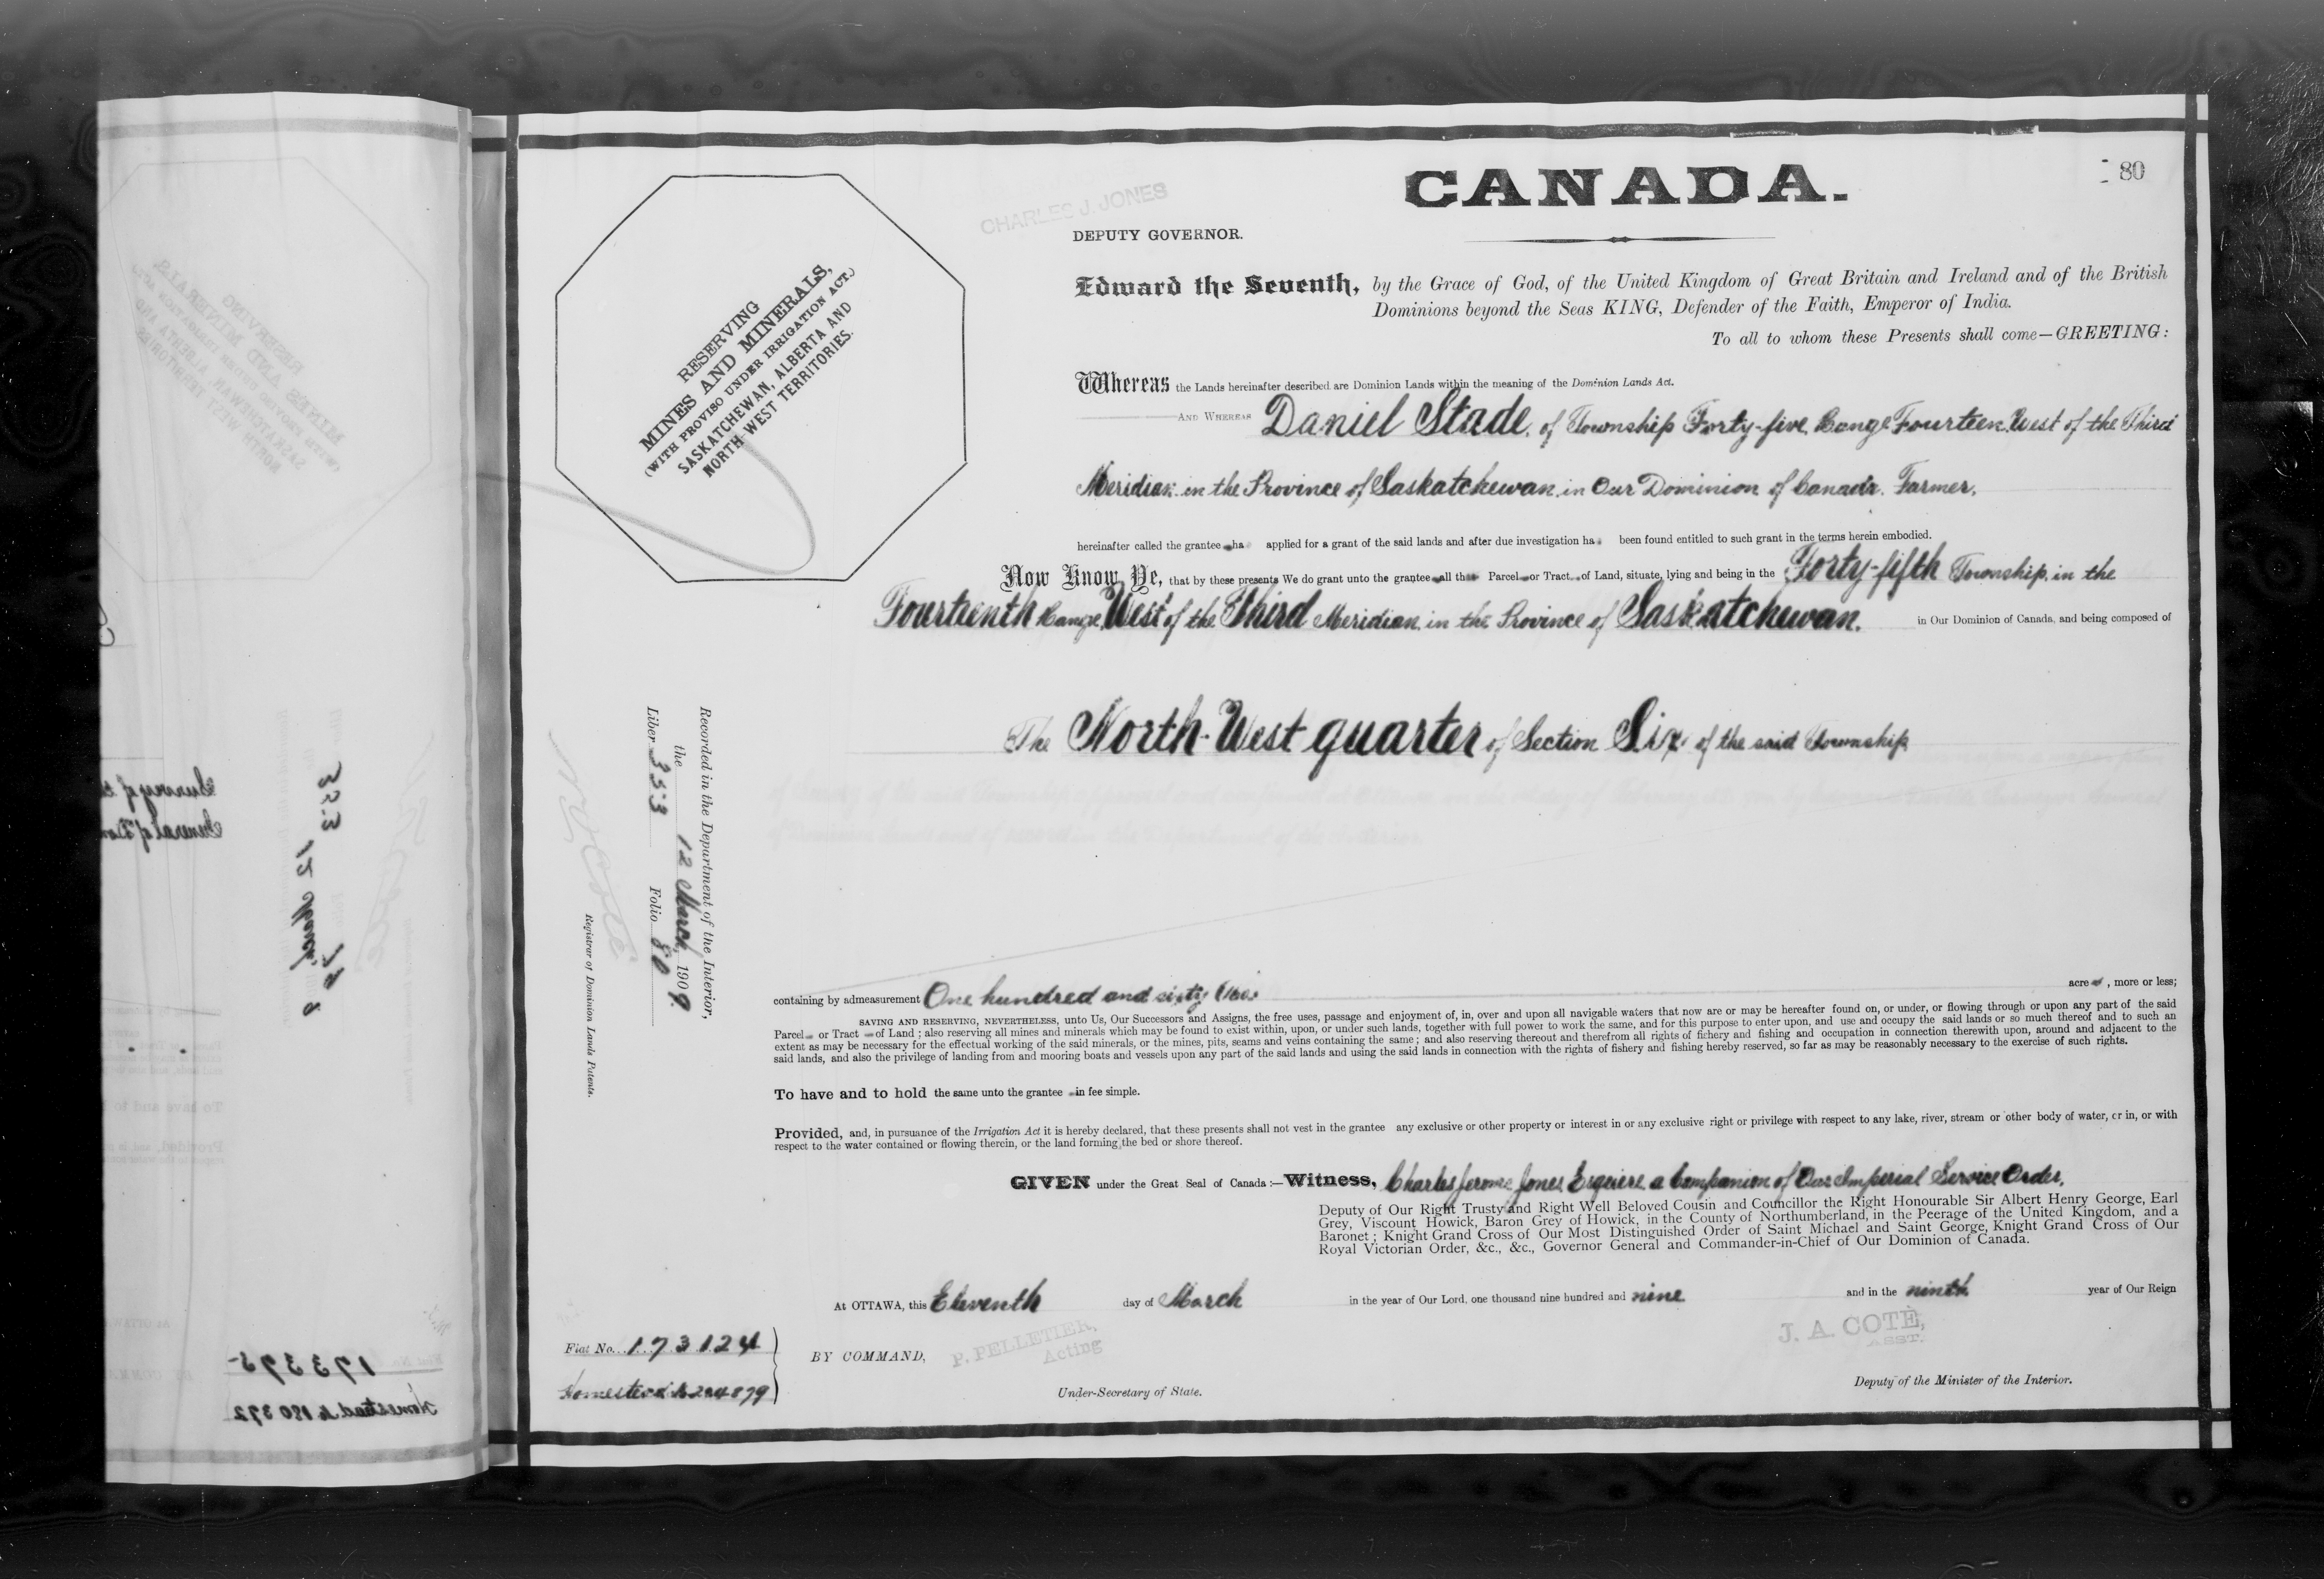 CANADA.
80
CHARLES J. JONES
DEPUTY GOVERNOR.
RESERVING
MINES AND MINERALS,
(WITH PROVISO UNDER IRRIGATION ACT.)
SASKATCHEWAN, ALBERTA AND
NORTH WEST TERRITORIES.
Edward the Seventh, by the Grace of God, of the United Kingdom of Great Britain and Ireland and of the British
Dominions beyond the Seas KING, Defender of the Faith, Emperor of India.
To all to whom these Presents shall come—GREETING:
Whereas the Lands hereinafter described are Dominion Lands within the meaning of the Dominion Lands Act.
AND WHEREAS Daniel Stade, of Township Forty-five, Range Fourteen, West of the Third
Meridian, in the Province of Saskatchewan, in Our Dominion of Canada, Farmer,
hereinafter called the grantee ha applied for a grant of the said lands and after due investigation ha been found entitled to such grant in the terms herein embodied.
Now Know Ye, that by these presents We do grant unto the grantee all th Parcel or Tract of Land, situate, lying and being in the Forty-fifth Township, in the
Fourteenth Range, West of the Third Meridian, in the Province of Saskatchewan, in Our Dominion of Canada, and being composed of
The North-West quarter of Section Six, of the said Township
Recorded in the Department of the Interior,
the 12 March, 1909
Liber 353 Folio 80
N O Coté
Registrar of Dominion Lands Patents.
containing by admeasurement One hundred and sixty (160) acre , more or less;
SAVING AND RESERVING, NEVERTHELESS, unto Us, Our Successors and Assigns, the free uses, passage and enjoyment of, in, over and upon all navigable waters that now are or may be hereafter found on, or under, or flowing through or upon any part of the said
Parcel or Tract of Land; also reserving all mines and minerals which may be found to exist within, upon, or under such lands, together with full power to work the same, and for this purpose to enter upon, and use and occupy the said lands or so much thereof and to such an
extent as may be necessary for the effectual working of the said minerals, or the mines, pits, seams and veins containing the same; and also reserving thereout and therefrom all rights of fishery and fishing and occupation in connection therewith upon, around and adjacent to the
said lands, and also the privilege of landing from and mooring boats and vessels upon any part of the said lands and using the said lands in connection with the rights of fishery and fishing hereby reserved, so far as may be reasonably necessary to the exercise of such rights.
To have and to hold the same unto the grantee in fee simple.
Provided, and, in pursuance of the Irrigation Act it is hereby declared, that these presents shall not vest in the grantee any exclusive or other property or interest in or any exclusive right or privilege with respect to any lake, river, stream or other body of water, or in, or with
respect to the water contained or flowing therein, or the land forming the bed or shore thereof.
GIVEN under the Great Seal of Canada:—Witness, Charles Jerome Jones, Esquiere, a Companion of Our Imperial Service Order,
Deputy of Our Right Trusty and Right Well Beloved Cousin and Councillor the Right Honourable Sir Albert Henry George, Earl
Grey, Viscount Howick, Baron Grey of Howick, in the County of Northumberland, in the Peerage of the United Kingdom, and a
Baronet; Knight Grand Cross of Our Most Distinguished Order of Saint Michael and Saint George, Knight Grand Cross of Our
Royal Victorian Order, &c., &c., Governor General and Commander-in-Chief of Our Dominion of Canada.
At OTTAWA, this Eleventh day of March in the year of Our Lord, one thousand nine hundred and nine and in the ninth year of Our Reign
Fiat No. 173124
Homestead No 204879
BY COMMAND,
P. PELLETIER,
Acting
Under-Secretary of State.
J. A. COTÉ,
ASST.
Deputy of the Minister of the Interior.